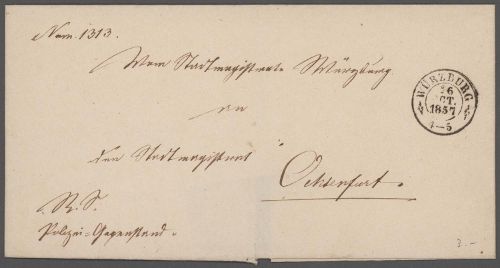 Num. 1313.
Vom Stadtmagistrate Würzburg
WÜRZBURG
26
OCT.
1857
4-5
an
den Stadtmagistrat
Ochsenfurt.
R. S.
Polizei-Gegenstand.
3.-